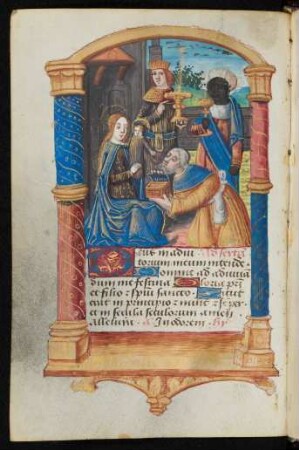 Deus in adiu Ad sexta
torium meum intende.
Domine ad adiuva
dum me festina Gloria pr̄i
et filio z spūi sancto. Sicut
erat in principio z nunc z sēper
et in secula seculorum amen
Alleluia a In odorem hp̄